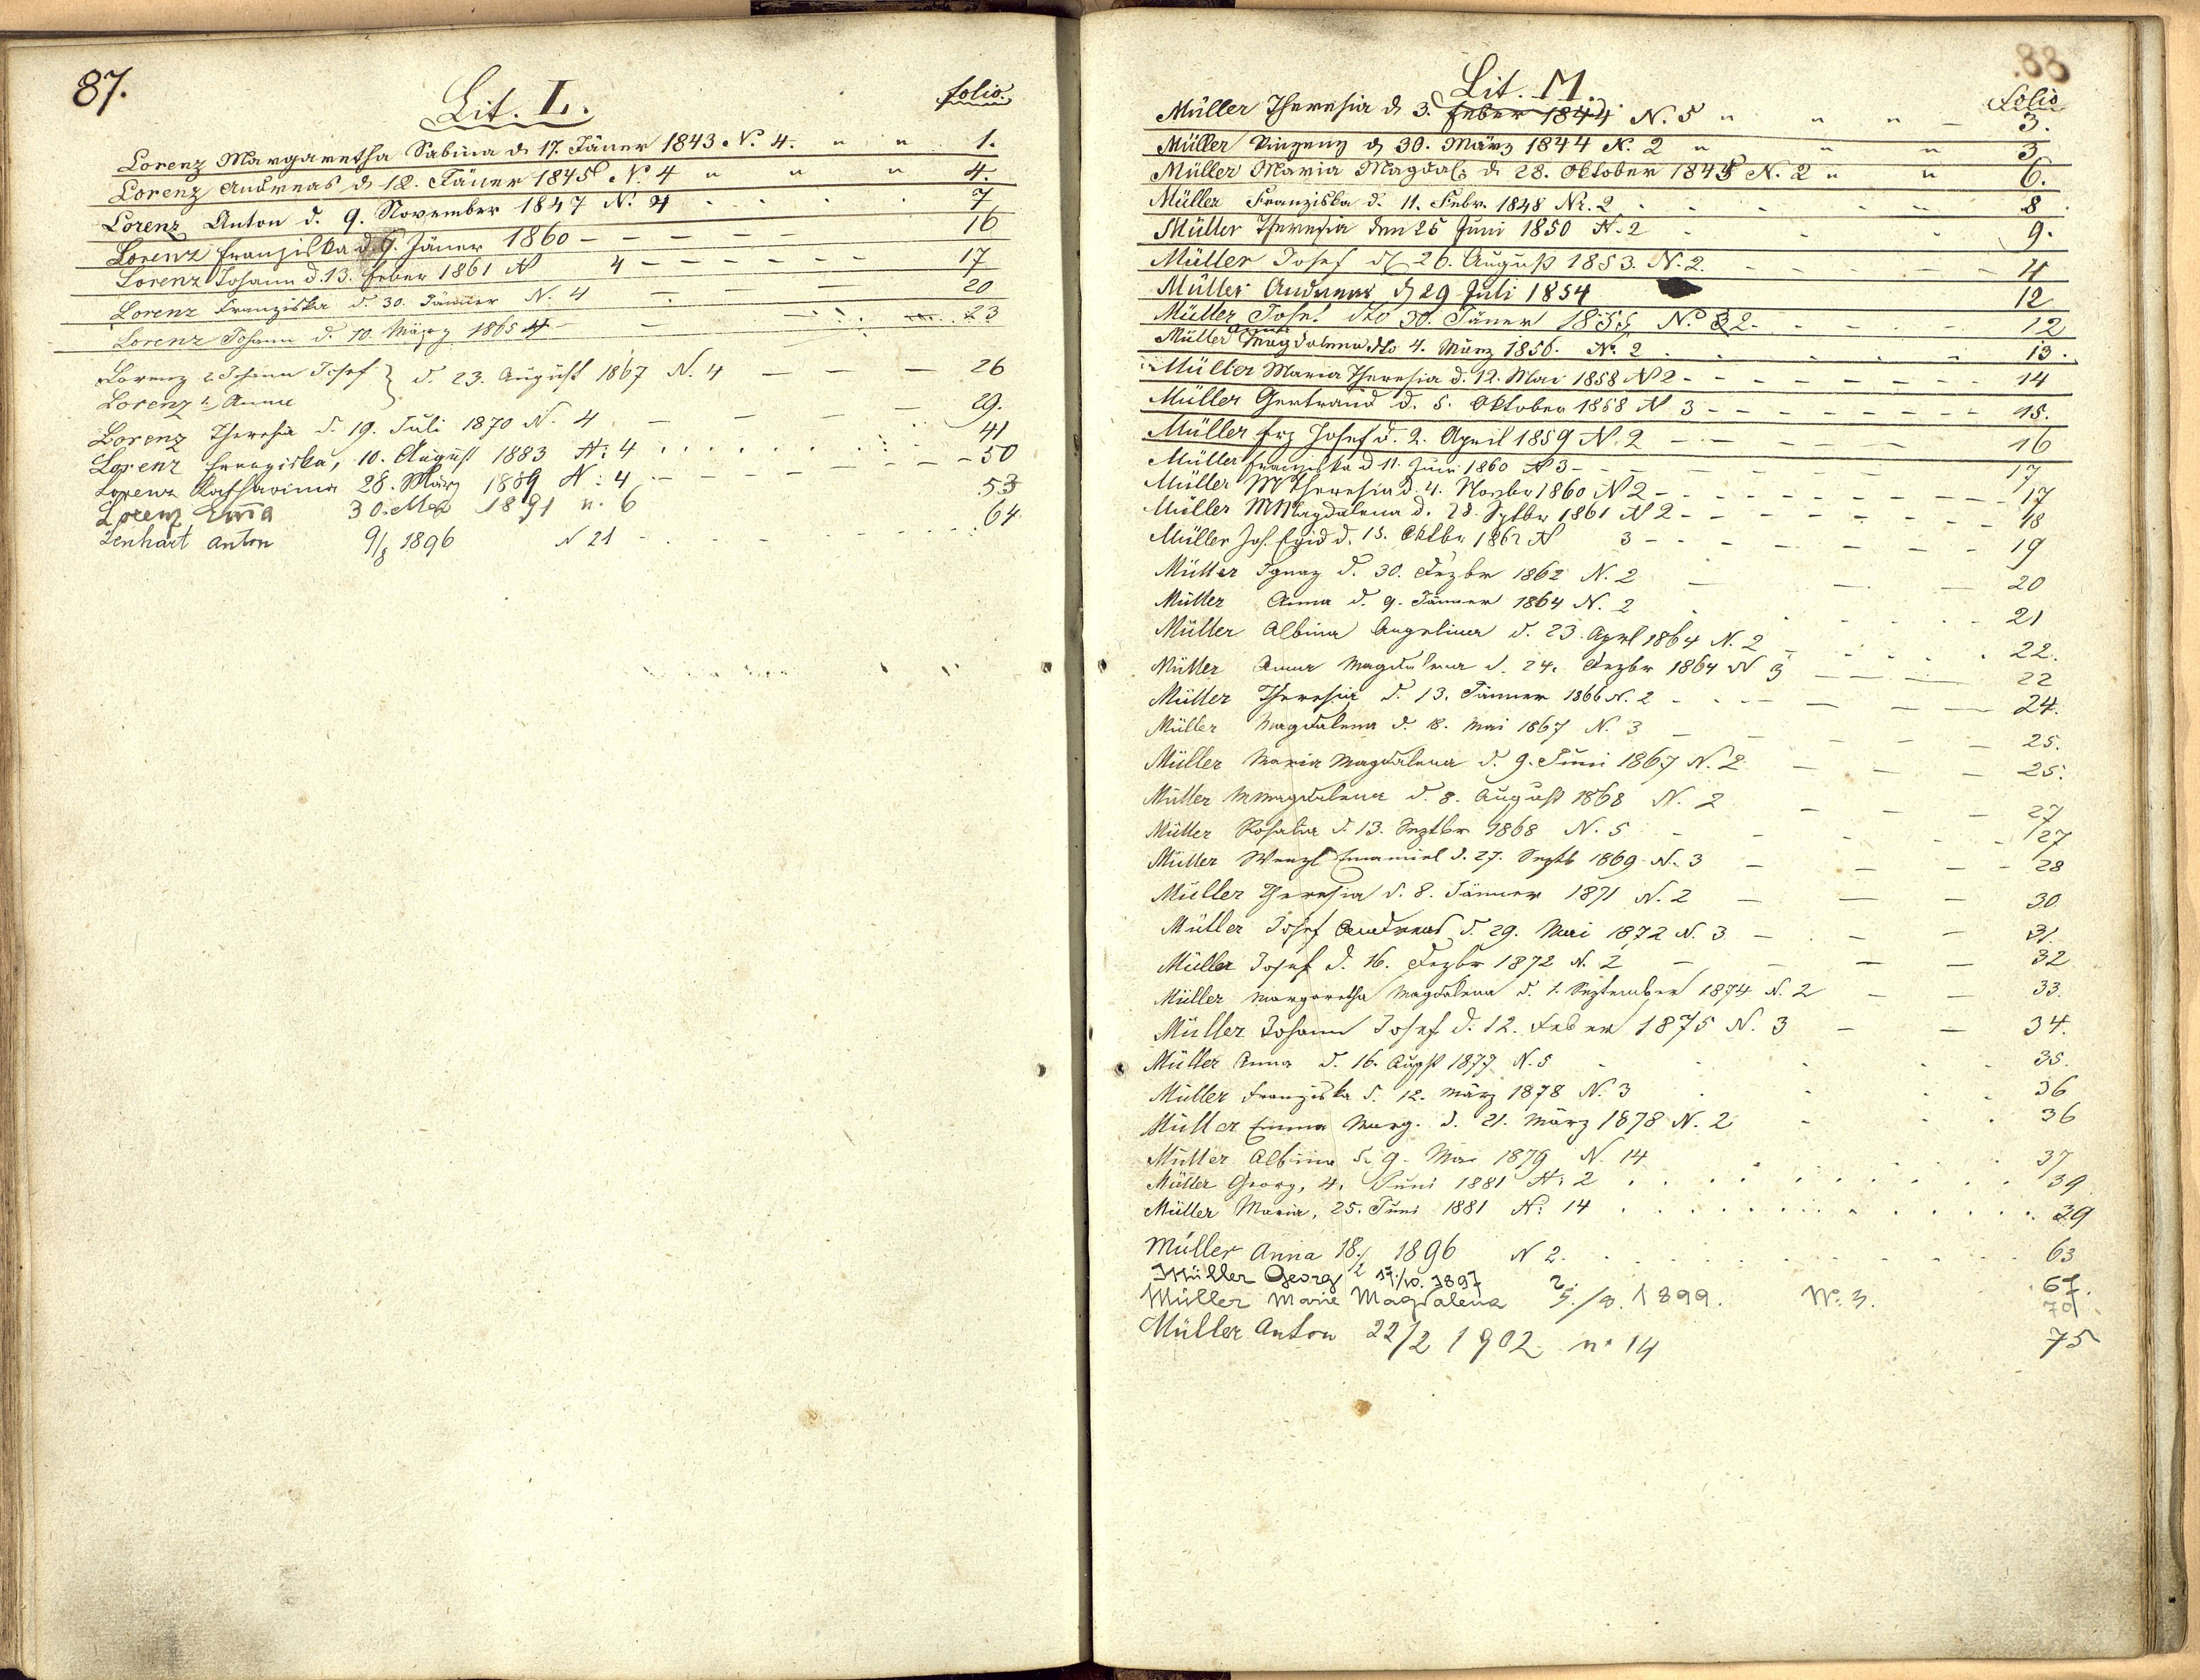 87.
Lit. L.
folio.
Lorenz Margaretha Sabina d. 17. Jäner 1843 N. 4. " " 1.
Lorenz Andreas d 12. Jäner 1845 N. 4 " " " 4.
Lorenz Anton d. 9. November 1847 N. 4 7
Lorenz Franziska d. 9. Jäner 1860 - - - - - 16
Lorenz Johann d. 13. Feber 1861 N 4 - - - - - - 17
Lorenz Franziska d. 30. Jänner N. 4 - - - 20
Lorenz Johann d. 10. März 1865 4 - - 23
Lorenz 2. Johann Josef } d. 23. August 1867 N. 4 — — — 26
Lorenz 1. Anna
Lorenz Theresia d. 19. Juli 1870 N. 4 — — — 29.
Lorenz Franziska, 10. August 1883 N: 4 . . . . . . 41
Lorenz Katharina 28. März 1889 N: 4 - - - - - 50
Lorenz Em̄a 30. Mai 1891 n. 6 53
Lenhart Anton 9/8 1896 N 21 - - - - 64
88.
Lit. M.
Folio
Müller Theresia d. 3. Feber 1844 N. 5 " " " - 3.
Müller Vinzenz d 30. März 1844 N. 2 " " " 3
Müller Maria Magdal. d. 28. Oktober 1845 N. 2 " " 6.
Müller Franziska d. 11. Febr. 1848 Nr. 2 8
Müller Theresia den 25 Juni 1850 N. 2 9.
Müller Josef d 26. August 1853. N. 2. - - - - 11
Müller Andreas d 29 Juli 1854 12
Müller Josef dto 30. Jäner 1855 N. 2 - - - - 12
Müller Anna Magdalena dto 4. März 1856. N. 2 . . . . . 13.
Müller Maria Theresia d. 12. Mai 1858 N 2 - - - - - - - - 14
Müller Gertraud d. 5. Oktober 1858 N 3 - - - - - - - - 15.
Müller Frz Josef d. 2. April 1859 N. 2 - - - - - 16
Müller Franziska d 11. Juni 1860 N 3 - - - - - - 17
Müller M Theresia d. 4. Novbr 1860 N 2 - - - - - - - - 17
Müller M Magdalena d. 28. Sptbr 1861 N 2 - - - - - - - 18
Müller Jos. Egid d. 15. Oktbr 1862 N 3 - - - - - - 19
Müller Ignaz d. 30. Dezbr 1862 N. 2 — — — 20
Müller Anna d. 9. Jänner 1864 N. 2 . . . . . 21
Müller Albina Angelina d. 23. April 1864 N. 2 22.
Müller Anna Magdalena d. 24. Dezbr 1864 N 3 — — — 22
Müller Theresia d. 13. Jänner 1866 N. 2 - - - — — — 24.
Müller Magdalena d. 18. Mai 1867 N. 3 — — — — 25.
Müller Maria Magdalena d. 9. Juni 1867 N. 2 — — — 25.
Müller M Magdalena d. 8. August 1868 N. 2 — — — 27
Müller Rosalia d. 13. Septbr 1868 N. 5 - - - - 27
Müller Wenzl Emanuel d. 27. Septb 1869 N. 3 — — — 28
Müller Theresia d. 8. Jänner 1871 N. 2 — — — 30
Müller Josef Andreas d. 29. Mai 1872 N. 3 — . — — 31.
Müller Josef d. 16. Dezbr 1872 N. 2 — — — — 32
Müller Margaretha Magdalena d. 1. September 1874 N. 2 — — 33.
Müller Johann Josef d. 12. Feber 1875 N. 3 — — 34.
Müller Anna d. 16. August 1877 N. 5 . . . . . 35.
Müller Franziska d. 12. März 1878 N. 3 . . . . 36
Müller Emma Marg. d. 21. März 1878 N. 2 . . . 36
Müller Albina d. 9. Mai 1879 N. 14 . . . . 37
Müller Georg, 4. Juni 1881 N: 2 . . . . . . . . . 39
Müller Maria, 25. Juni 1881 N: 14 . . . . . . . . . . 39
Müller Anna 18./2 1896 N 2. . . . . . . . . 63
Müller Georg 17./10. 1897 67.
Müller Marie Magdalena /8. 1899. N. 3. 70
Müller Anton 22/2 1902 n° 14 75